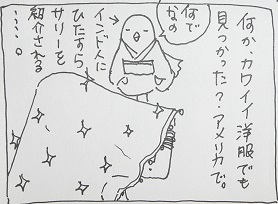 何か、カワイイ洋服でも
見つかった？アメリカで。
何で
なの
インド人に
ひたすら
サリーを
紹介される
……。